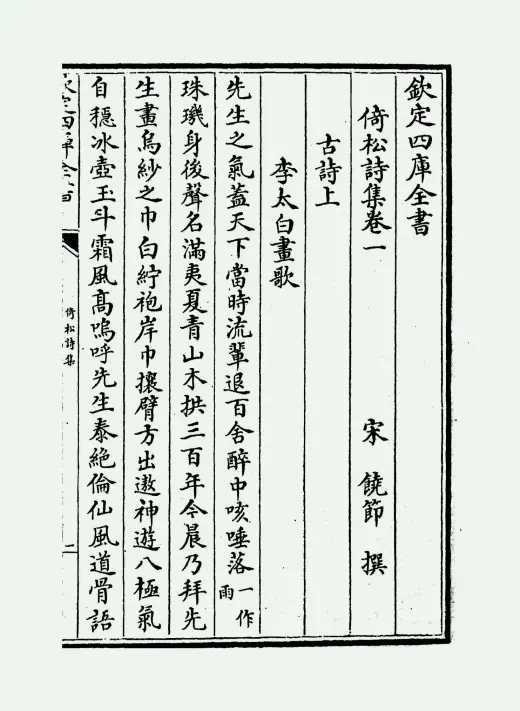 欽定四庫全書
倚松詩集卷一
宋 饒節 撰
古詩上
李太白畫歌
先生之氣蓋天下當時流輩退百舍醉中咳唾落一作雨
珠璣身後聲名滿夷夏青山木拱三百年今晨乃拜先
生畫烏紗之巾白紵袍岸巾攘臂方出遨神遊八極氣
自穩冰壺玉斗霜風高嗚呼先生泰絶倫仙風道骨語
欽定四庫全書
倚松詩集
一